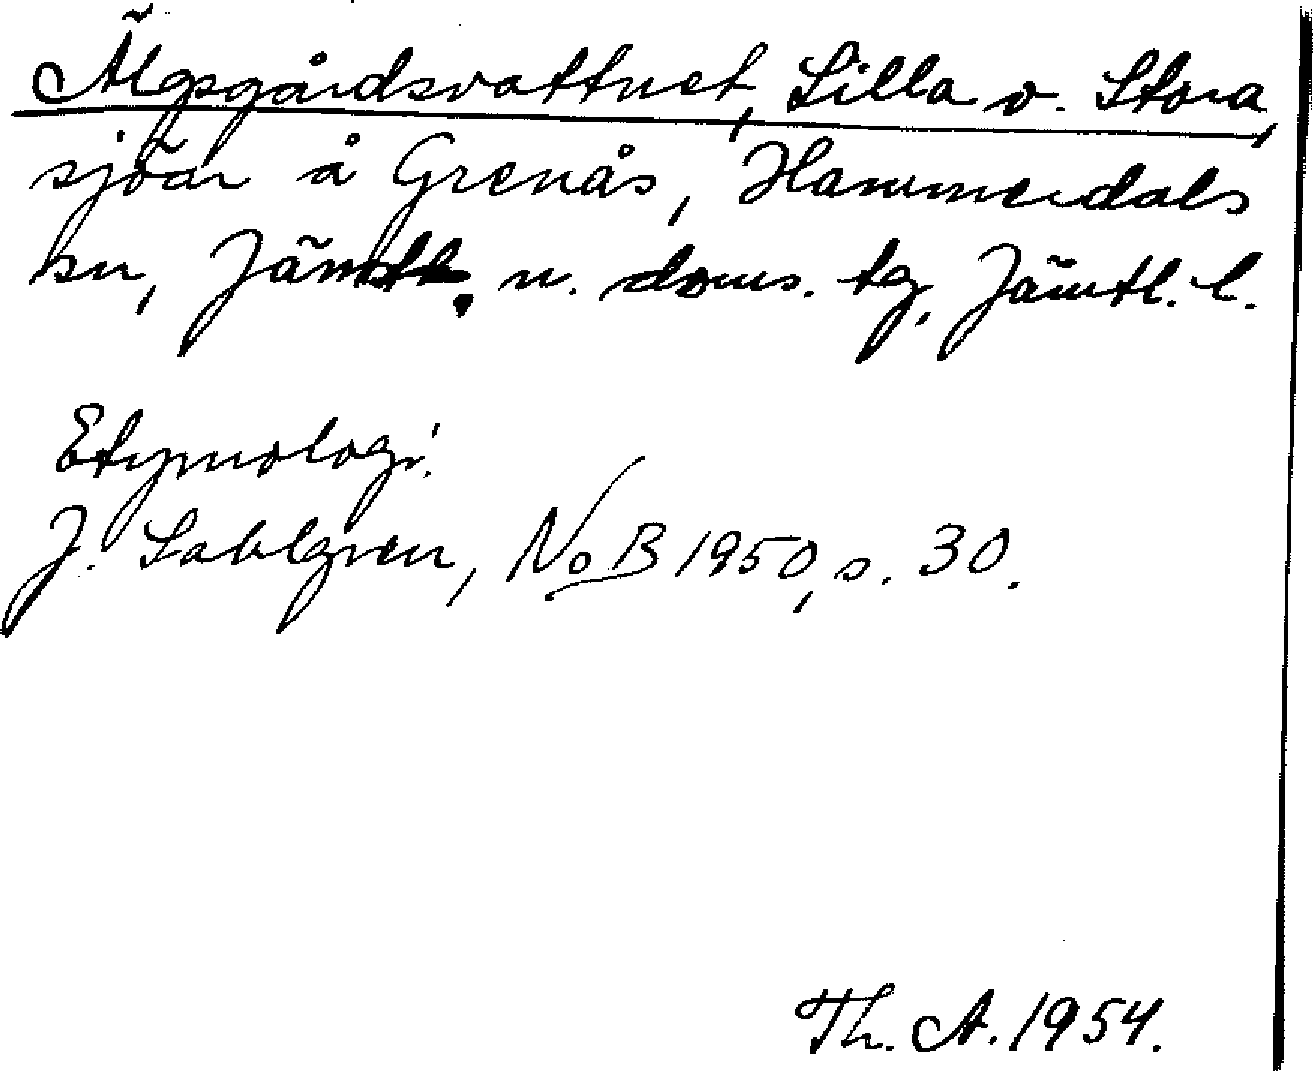 Älgsgårdsvattnet, Lilla o. Stora,
sjöar å Grenås, Hammerdals
sn, Jämtl. n. doms. tg, Jämtl. l.
Etymologi:
J. Sahlgren, NoB 1950, s. 30.
Th. A. 1954.